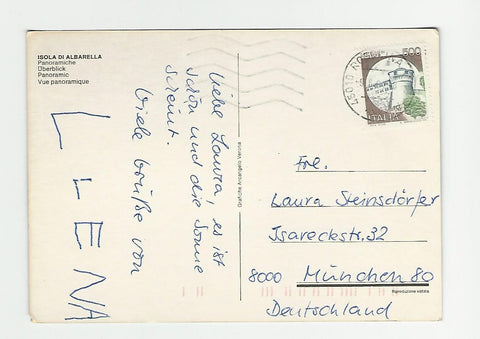 ISOLA DI ALBARELLA
Panoramiche
Überblick
Panoramic
Vue panoramique
Liebe Laura, es ist
schön und die Sonne
scheint.
Viele Grüße von
LENA
500
ITALIA
Frl.
Laura Steinsdörfer
Isareckstr. 32
8000 München 80
Deutschland
Riproduzione vietata